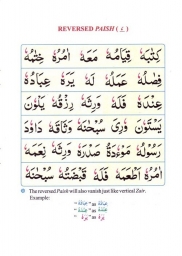 REVERSED PAISH ( ٗ )
كِتٰبَهٗ قِيَامَهٗ مَعَهٗ اَمْرُهٗ خِتٰمُهٗ
فِصٰلُهٗ عَمَلُهٗ لَهٗ يَرَهٗ عِبَادُهٗ
عِنْدَهٗ قَلَهٗ وَرِثَهٗ رِزْقُهٗ يَلْوٗنَ
يَسْتَوٗنَ وُرِيَ سُبْحٰنَهٗ وَثَاقَهٗ دَاوٗدَ
رَسُوْلُهٗ مَوْءٗدَةُ صَدْرَهٗ وَرِثَهٗ نِعَمَهٗ
اَمْرُهٗ اَطْعَمَهٗ قَلَهٗ قَبَضْتُهٗ سُبْحٰنَهٗ
The reversed Paish will also vanish just like vertical Zair.
Example: